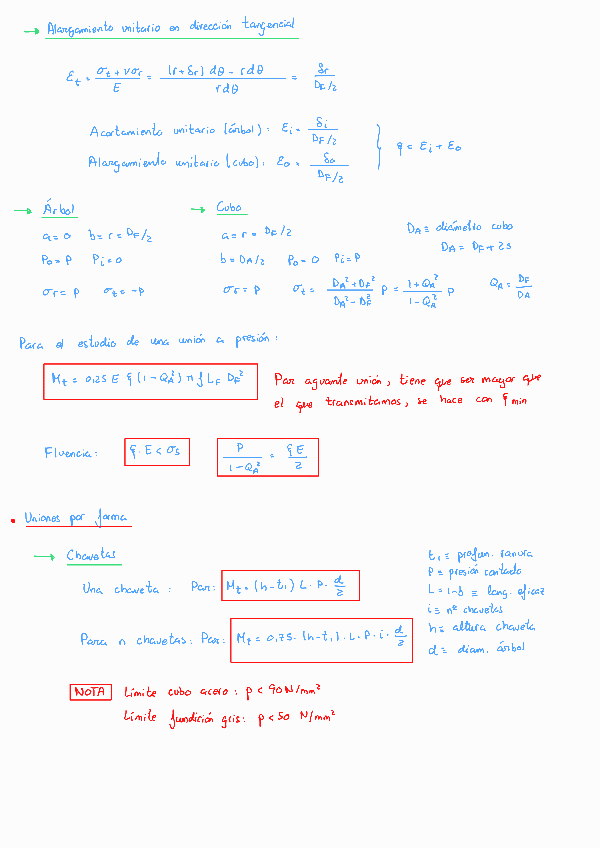 → Alargamiento unitario en dirección tangencial
ε_t = (σ_t + νσ_r)/E = ((r+δr) dθ - r dθ)/(r dθ) = δr/(D_F/2)
Acortamiento unitario (árbol): ε_i = δ_i/(D_F/2)
Alargamiento unitario (cubo): ε_o = δ_o/(D_F/2)
} ξ = ε_i + ε_o
→ Árbol
a = 0 b = r = D_F/2
P_o = P P_i = 0
σ_r = P σ_t = -P
→ Cubo
a = r = D_F/2
b = D_A/2 P_o = 0 P_i = P
σ_r = P σ_t = (D_A² + D_F²)/(D_A² - D_F²) P = (1 + Q_A²)/(1 - Q_A²) P
D_A ≡ diámetro cubo
D_A = D_F + 2s
Q_A = D_F/D_A
Para el estudio de una unión a presión:
M_t = 0,25 E ξ (1 - Q_A²) π f L_F D_F²
Par aguante unión, tiene que ser mayor que
el que transmitamos, se hace con ξ min
Fluencia: ξ · E < σ_s P/(1 - Q_A²) = ξE/2
• Uniones por forma
→ Chavetas
Una chaveta: Par: M_t = (h - t_1) L · P · d/2
Para n chavetas: Par: M_t = 0,75 · (h - t_1) · L · P · i · d/2
t_1 ≡ profun. ranura
P ≡ presión contacto
L = l-b ≡ long. eficaz
i ≡ nº chavetas
h ≡ altura chaveta
d ≡ diam. árbol
NOTA Límite cubo acero: p < 90 N/mm²
Límite fundición gris: p < 50 N/mm²